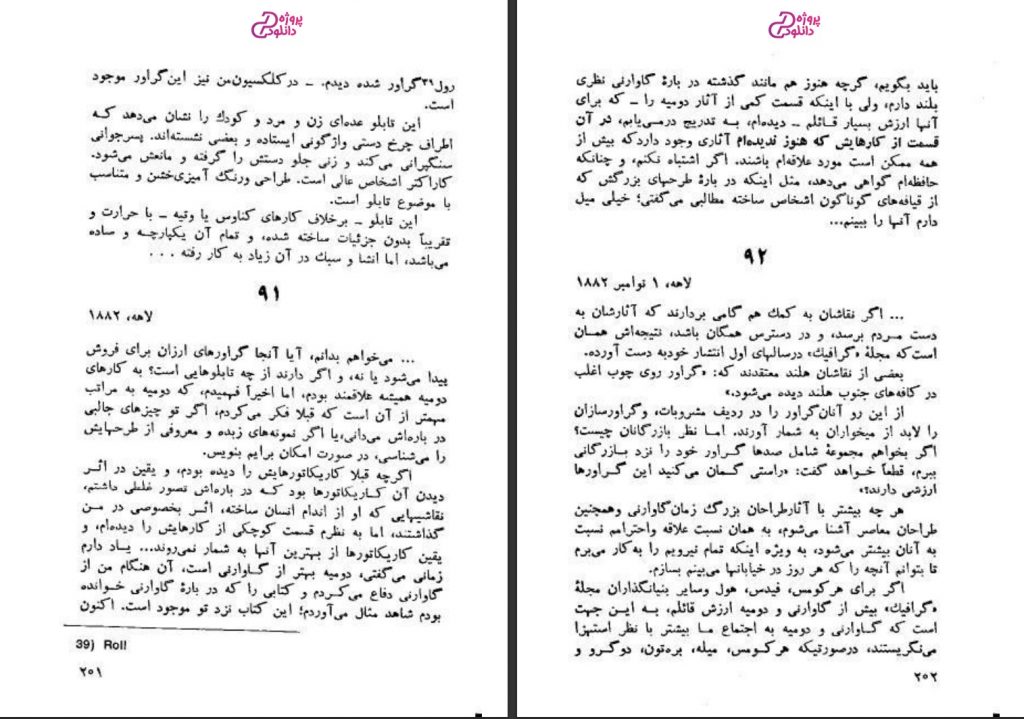 پروژه
دانلود
رول۳۹گراور شده دیدم. ـ در کلکسیون من نیز این گراور موجود
است.
این تابلو عده‌ای زن و مرد و کودك را نشان می‌دهد کـه
اطراف چرخ دستی واژگونی ایستاده و بعضی نشسته‌اند. پسرجوانی
سنگپرانی می‌کند و زنی جلو دستش را گرفته و مانعش می‌شود.
کاراکتر اشخاص عالی است. طراحی ورنگ آمیزی‌خشن و متناسب
با موضوع تابلو است.
این تابلو ـ برخلاف کارهای کناوس یا وتیه ـ با حرارت و
تقریباً بدون جزئیات ساخته شده، و تمام آن یکپارچـه و ساده
می‌باشد، اما انشا و سبك در آن زیاد به کار رفته . . .
۹۱
لاهه، ۱۸۸۲
... می‌خواهم بدانم، آیا آنجا گراورهای ارزان برای فروش
پیدا می‌شود یا نه، و اگر دارند از چه تابلوهایی است؟ به کارهای
دومیه همیشه علاقمند بودم، اما اخیراً فهمیدم، که دومیه به مراتب
مهمتر از آن است که قبلا فکر می‌کردم، اگر تو چیزهای جالبی
در باره‌اش می‌دانی،یا اگر نمونه‌های زبده و معروفی از طرحهایش
را می‌شناسی، در صورت امکان برایم بنویس.
اگرچه قبلا کاریکاتورهایش را دیده بودم، و یقین در اثـر
دیدن آن کـاریکاتورها بود کـه در باره‌اش تصور غلطی داشتم،
نقاشیهایی که او از اندام انسان ساخته، اثـر بخصوصی در مـن
گذاشتند، اما به نظرم قسمت کوچکی از کارهایش را دیده‌ام، و
یقین کاریکاتورها از بهترین آنها به شمار نمی‌روند... یـاد دارم
زمانی می‌گفتی، دومیه بهتر از گـاوارنی است، آن هنگام من از
گاوارنی دفاع می‌کـردم و کتابی را که در بارهٔ گاوارنی خـوانده
بودم شاهد مثال می‌آوردم؛ این کتاب نزد تو موجود است. اکنون
39) Roll
۲۰۱
پروژه
دانلود
باید بگویم، گرچه هنوز هم مانند گذشته در بارهٔ گاوارنی نظری
بلند دارم، ولی با اینکه قسمت کمی از آثار دومیه را ـ که برای
آنها ارزش بسیار قـائلم ـ دیده‌ام، بـه تدریج درمـی‌یابم، در آن
قسمت از کارهایش که هنوز ندیده‌ام آثاری وجود داردکه بیش از
همه ممکن است مورد علاقه‌ام باشند. اگر اشتباه نکنم، و چنانکه
حافظه‌ام گواهی می‌دهد، مثل اینکه در بارهٔ طرحهای بزرگش که
از قیافه‌های گوناگون اشخاص ساخته مطالبی می‌گفتی؛ خیلی میل
دارم آنها را ببینم...
۹۲
لاهه، ۱ نوامبر ۱۸۸۲
... اگر نقاشان به کمك هم گامی بردارند که آثارشان به
دست مـردم برسد، و در دسترس همگان باشد، نتیجه‌اش همـان
است‌که مجلهٔ «گرافیك» درسالهای اول انتشار خودبه دست آورده.
بعضی از نقاشان هلند معتقدند که: «گراور روی چوب اغلب
در کافه‌های جنوب هلند دیده می‌شود.»
از این رو آنان‌گراور را در ردیف مشروبات، وگراورسازان
را لابد از میخواران به شمار آورند. امـا نظر بازرگانان چیست؟
اگر بخواهم مجموعهٔ شامل صدها گـراور خود را نزد بـازرگانی
ببرم، قطعاً خـواهد گفت: «راستی گـمان می‌کنید این گـراورها
ارزشی دارند؟»
هر چه بیشتر با آثارطراحان بزرگ زمان‌گاوارنی وهمچنین
طراحان معاصر آشنا می‌شوم، به همان نسبت علاقه واحترامم نسبت
به آنان بیشتر می‌شود، به ویژه اینکه تمام نیرویم را به‌کار می‌برم
تا بتوانم آنچه را که هر روز در خیابانها می‌بینم بسازم.
اگر برای هرکومس، فیدس، هول وسایر بنیانگذاران مجلهٔ
«گرافیك» بیش از گاوارنی و دومیه ارزش قائلم، بـه ایـن جهت
است که گـاوارنی و دومیه به اجتماع مـا بیشتر با نظر استهزا
می‌نگریستند، درصورتیکه هرکـومس، میله، بره‌تون، دوگـرو و
۲۰۲